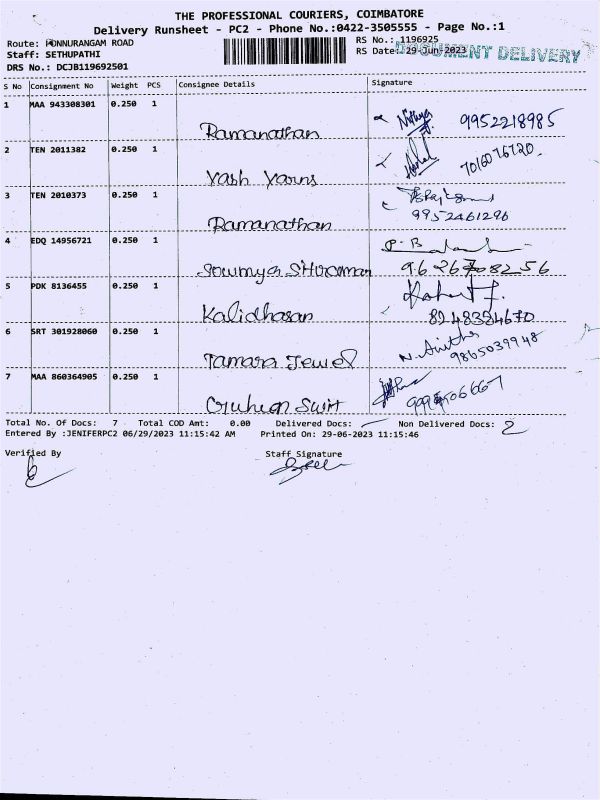 THE PROFESSIONAL COURIERS, COIMBATORE
Delivery Runsheet - PC2 - Phone No.:0422-3505555 - Page No.:1
Route: PONNURANGAM ROAD
RS No.: 1196925
Staff: SETHUPATHI
RS Date: 29-Jun-2023
DOCUMENT DELIVERY
DRS No.: DCJB119692501
S No Consignment No Weight PCS Consignee Details Signature
1 MAA 943308301 0.250 1
Ramanathan 9952218985
2 TEN 2011382 0.250 1
Yash Yarns 7016076720
3 TEN 2010373 0.250 1
Ramanathan 9952461296
4 EDQ 14956721 0.250 1
P. B
Sowmya 9626708256
5 PDK 8136455 0.250 1
Kalidhasan 8248384670
6 SRT 301928060 0.250 1
N. Anitha
Tamara Jewel 9865039948
7 MAA 860364905 0.250 1
Total No. Of Docs: 7 Total COD Amt: 0.00 Delivered Docs: Non Delivered Docs: 2
Entered By :JENIFERPC2 06/29/2023 11:15:42 AM Printed On: 29-06-2023 11:15:46
Verified By Staff Signature